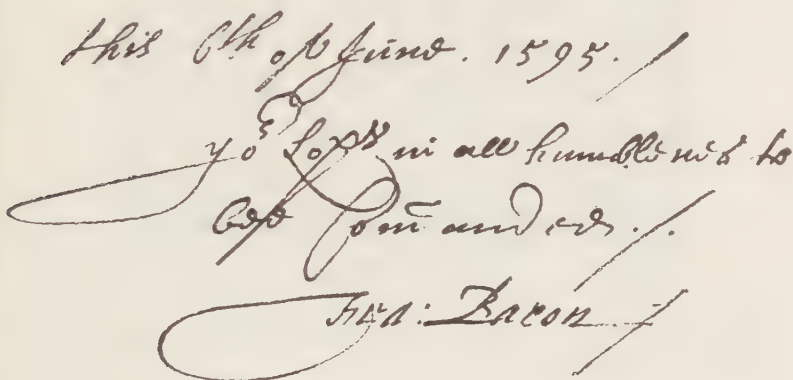 this 6th of June. 1595./
yor Lops in all humblenes to
be Comanded./.
Fra: Bacon